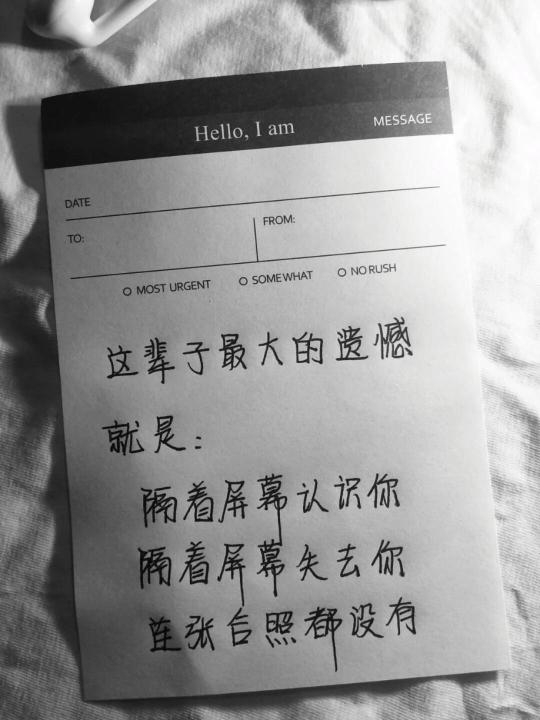 Hello, I am
MESSAGE
DATE
TO:
FROM:
MOST URGENT
SOMEWHAT
NO RUSH
这辈子最大的遗憾
就是：
隔着屏幕认识你
隔着屏幕失去你
连张合照都没有